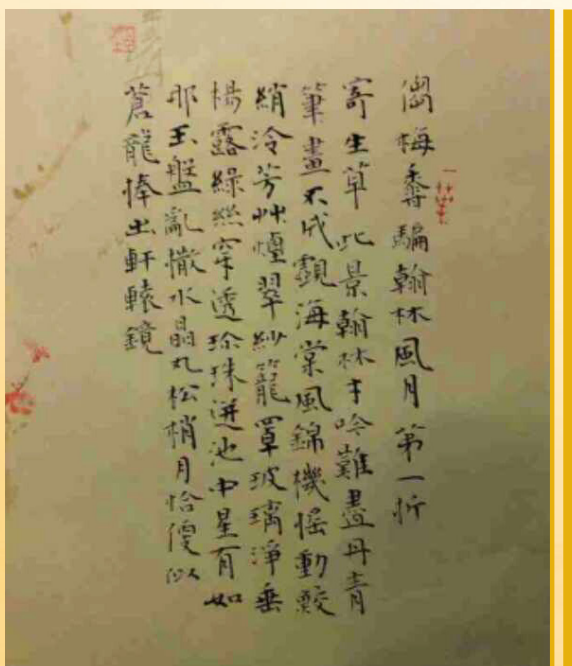 㑳梅香騙翰林風月第一折
寄生草此景翰林才吟難盡丹青
筆畫不成覷海棠風錦機搖動鮫
綃冷芳艸煙翠紗籠罩玻璃淨垂
楊露綠絲穿透珍珠迸池中星有如
那玉盤亂撒水晶丸松梢月恰便似
蒼龍捧出軒轅鏡